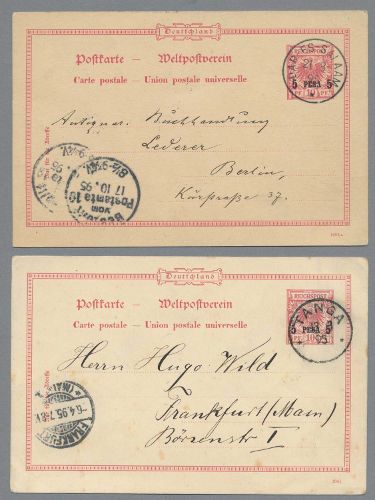 Deutschland
Postkarte – Weltpostverein
Carte postale – Union postale universelle
DAR-ES-SALAAM
5 PESA 5
Antiquar. Buchhandlung
Lederer
Berlin,
Kurstraße 37.
Bestellt
vom
Postamte 19
17 10 95
8½-9¾V.
Deutschland
Postkarte – Weltpostverein
Carte postale – Union postale universelle
REICHSPOST
TANGA
5 PESA 5
95
Herrn Hugo Wild
Frankfurt (Main)
Börsenstr I
FRANKFURT
(MAIN)
-6.4.95.7-8V.